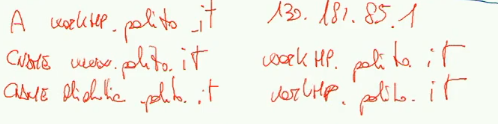 A workHP.polito.it 130.181.85.1
CNAME www.polito.it workHP.polito.it
CNAME didattica.polito.it workHP.polito.it